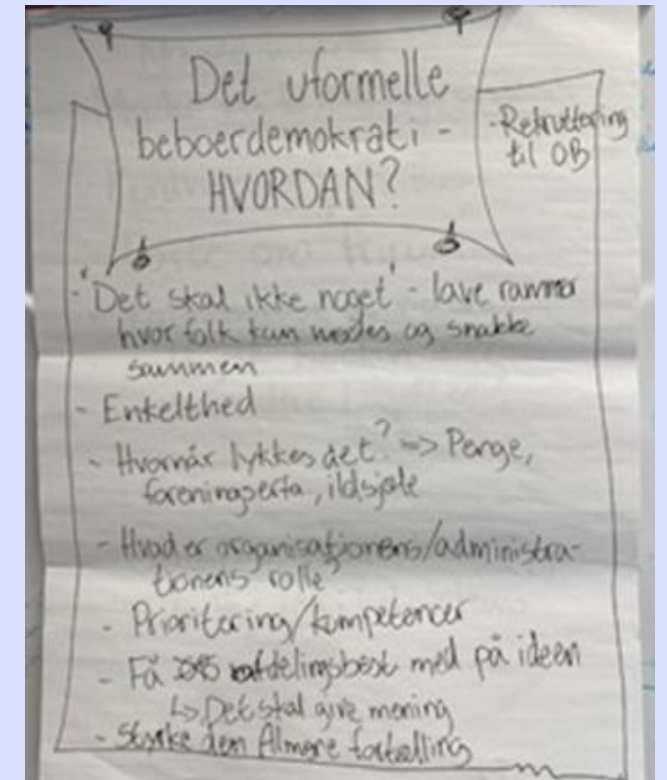 Det uformelle
beboerdemokrati -
HVORDAN?
- Rekruttering
til OB
- 'Det skal ikke noget' - lave rammer
hvor folk kan mødes og snakke
sammen
- Enkelthed
- Hvornår lykkes det? => Penge,
ildsjæle
- Hvad er organisationens/administra-
tionens rolle?
- Prioritering/kompetencer
- Få afdelingsbest med på ideen
↳ Det skal give mening
- Styrke den Almene fortælling